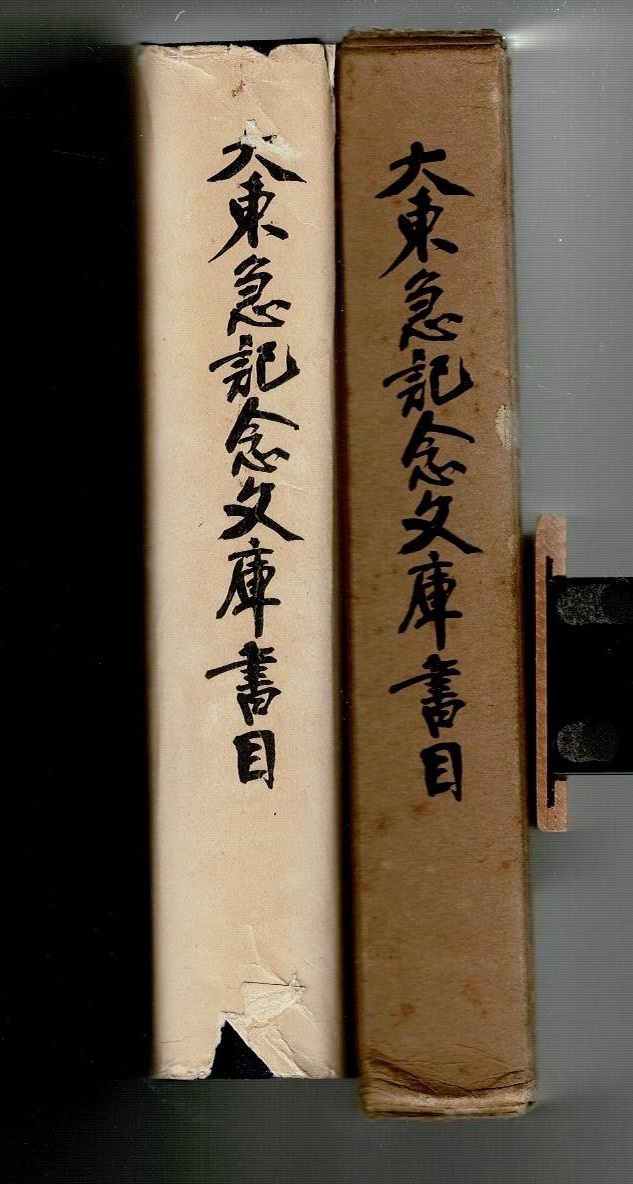 大東急記念文庫書目
大東急記念文庫書目